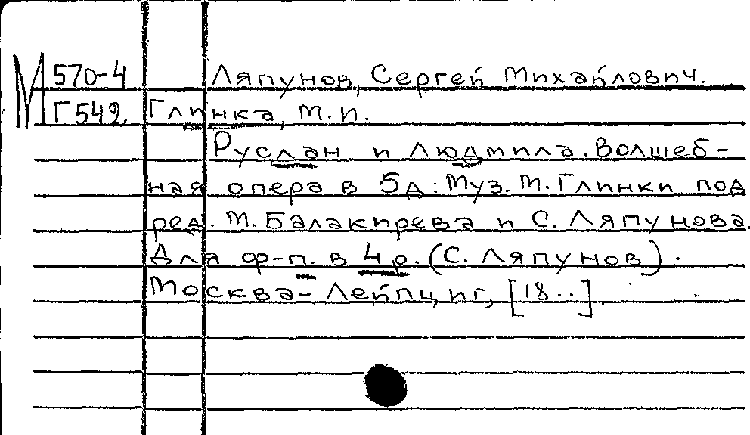 М 570-4 Ляпунов, Сергей Михайлович.
Г 549. Глинка, М. И.
Руслан и Людмила. Волшеб-
ная опера в 5 д. Муз. М. Глинки под
ред. М. Балакирева и С. Ляпунова.
Для ф-п. в 4 р. (С. Ляпунов).
Москва-Лейпциг, [18..].